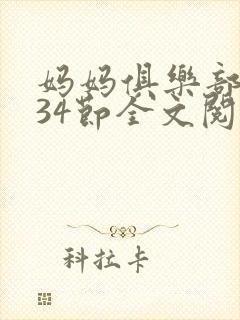 妈妈俱樂部
34節全文閱
科拉卡